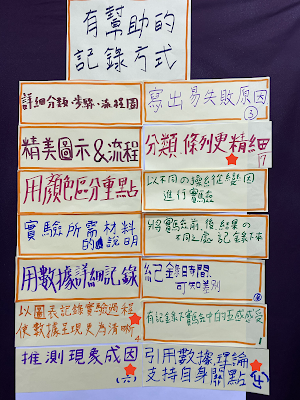 有幫助的
記錄方式
詳細分類、步驟、流程圖
寫出易失敗原因
③
精美圖示&流程
分類條列更精細
用顏色區分重點
以不同の操縱變因
進行實驗
實驗所需材料
的說明
將實驗前、後結果の
不同之處記錄下來
用數據詳細記錄
紀錄日時間
可知差別
以圖表記錄實驗過程
使數據呈現更為清晰
有記錄下實驗中的五感感受
推測現象成因
引用數據、理論
支持自身關點